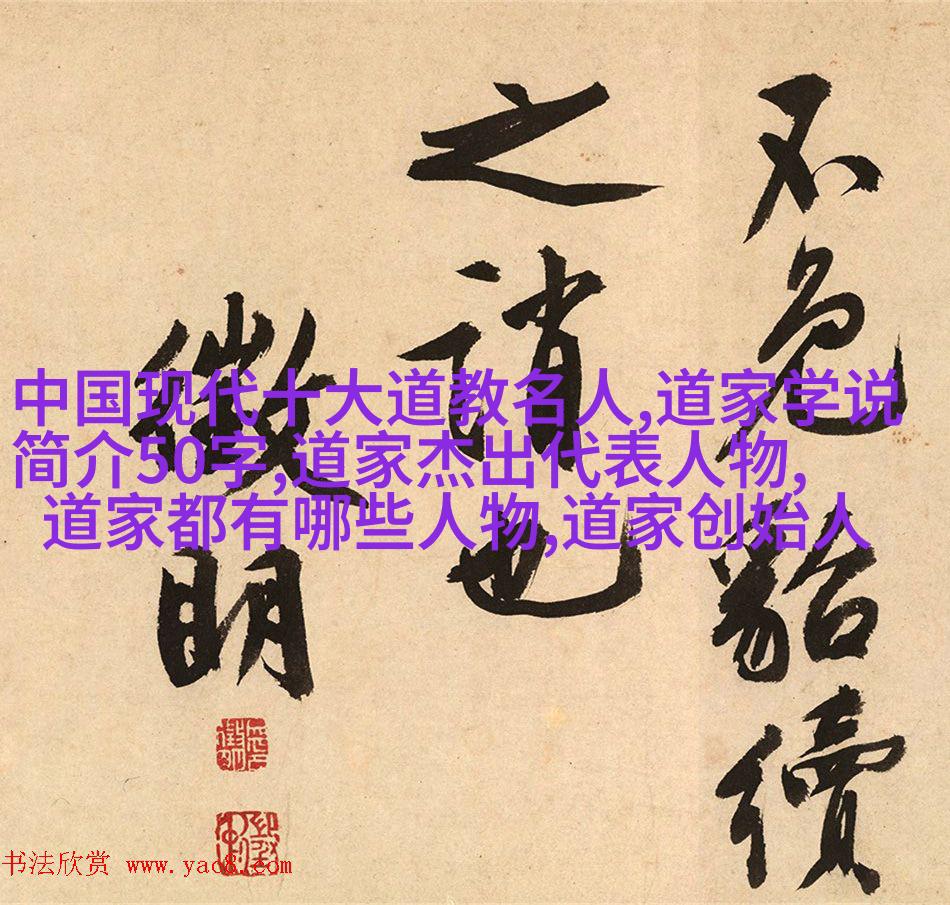 不免貂續
之誚也
徵明
中国现代十大道教名人,道家学说
简介50字,道家杰出代表人物,
道家都有哪些人物,道家创始人
书法欣赏 www.yac8.com